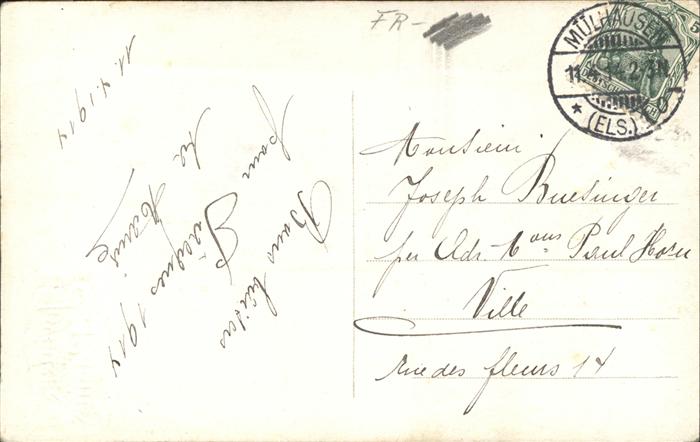 FR-
MÜLHAUSEN
(ELS.)
5
11.4.1914
Bons baisers
pour
Pâques 1914
Marie
Monsieur
Joseph Buesinger
per Adr. Paul Horn
Ville
rue des fleurs 14